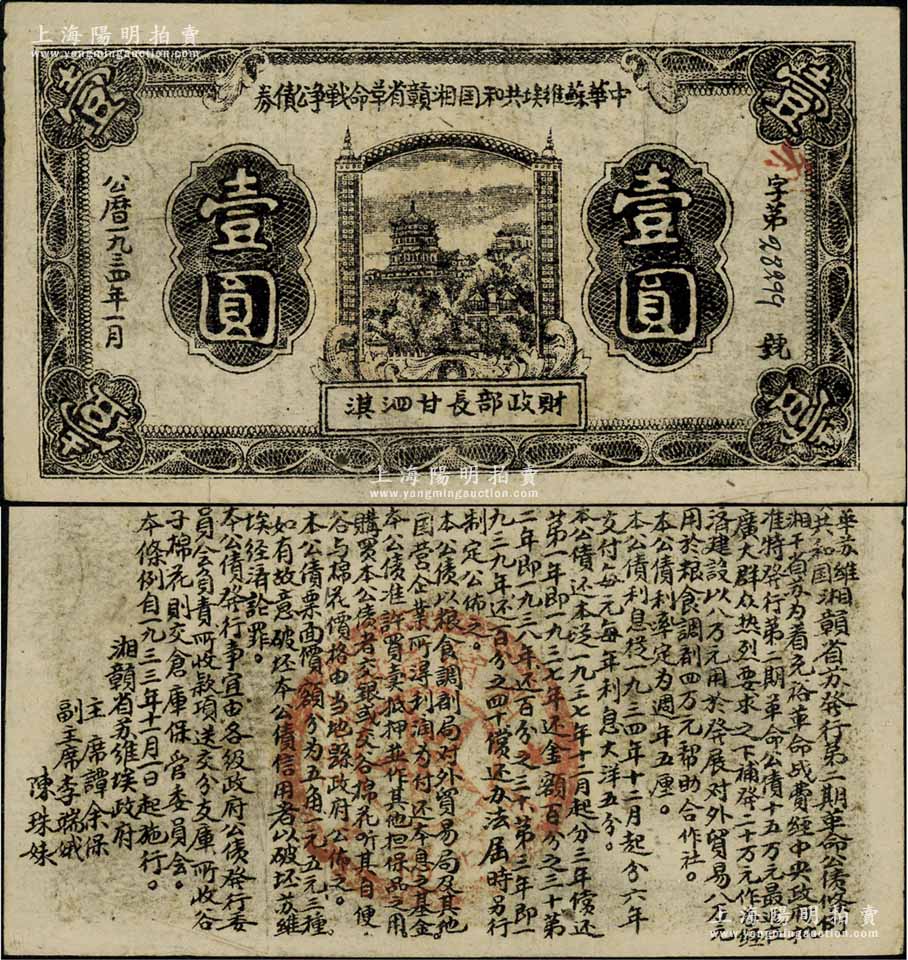 上海陽明拍賣
www.yangmingauction.com
中華蘇維埃共和国湘贛省革命戰争公債券
壹
壹
字第98994號
壹圓
壹圓
公曆一九三四年一月
財政部長甘泗淇
壹
壹
上海陽明拍賣
www.yangmingauction.com
華苏維
共和国湘贛省苏發行第二期革命公債條例
湘干省苏为着充裕革命战費經中央政府批
准特發行第二期革命公債十五万元最近
廣大群众热列要求之下補發二十万元作經
济建設以八万元用於發展对外貿易八万元
用於粮食調剂四万元帮助合作社。
本公債利率定为週年五厘。
本公債利息從一九三四年十二月起分六年
交付每元每年利息大洋五分。
本公債还本從一九三七年十二月起分三年償还
第一年即一九三七年还金額百分之三十第
二年即一九三八年还百分之三十第三年即一
九三九年还百分之四十償还办法屆時另行
制定公佈之。
本公債以粮食調剂局对外貿易局及其他
国营企業所得利润为付还本息之基金
本公債准許買卖抵押並作其他担保品之用
購買本公債者交銀或交谷棉花听其自便
谷与棉花價格由当地縣政府公佈之。
本公債票面價額分为五角一元五元三種
如有故意破坯本公債信用者以破坯苏維
埃经济論罪。
本公債發行事宜由各级政府公債發行委
員会負責所收款項送交分支庫所收谷
子棉花則交倉庫保管委員会。
本條例自一九三三年十一月一日起施行。
湘贛省苏維埃政府
主席譚余保
副主席李端娥
陳珠妹
上海陽明拍賣
www.yangmingauction.com